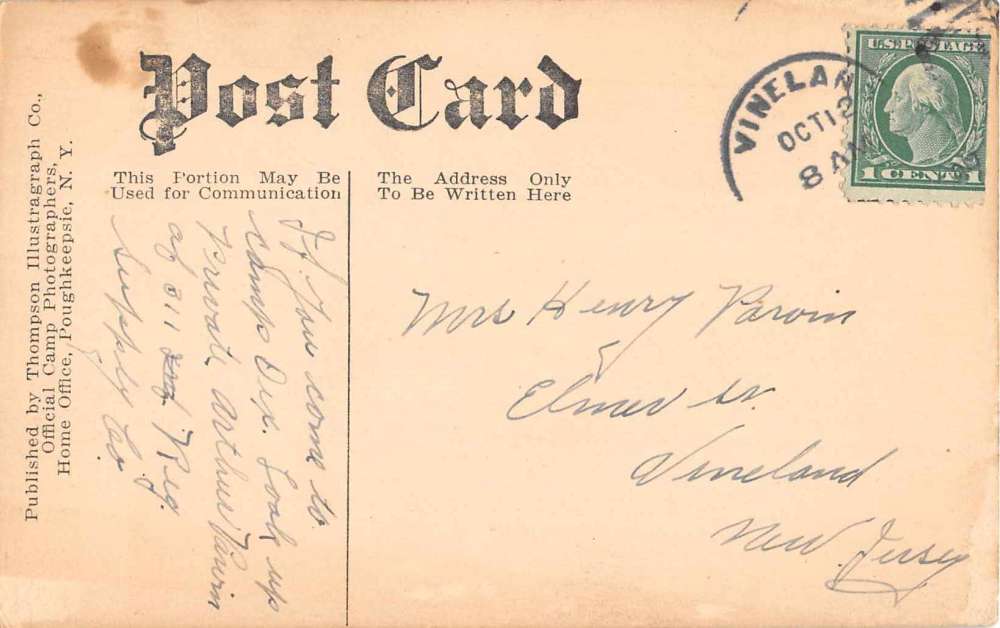 Post Card
This Portion May Be
Used for Communication
The Address Only
To Be Written Here
Published by Thompson Illustragraph Co.,
Official Camp Photographers,
Home Office, Poughkeepsie, N. Y.
VINELAN
OCT 12
8 AM
U.S. POSTAGE
1 CENT 1
If You come to
Camp Dix. Look up
private Arthur Parvin
of 311 Reg.
Supply Co.
Mrs Henry Parvin
Elmer St.
Vineland
New Jersey